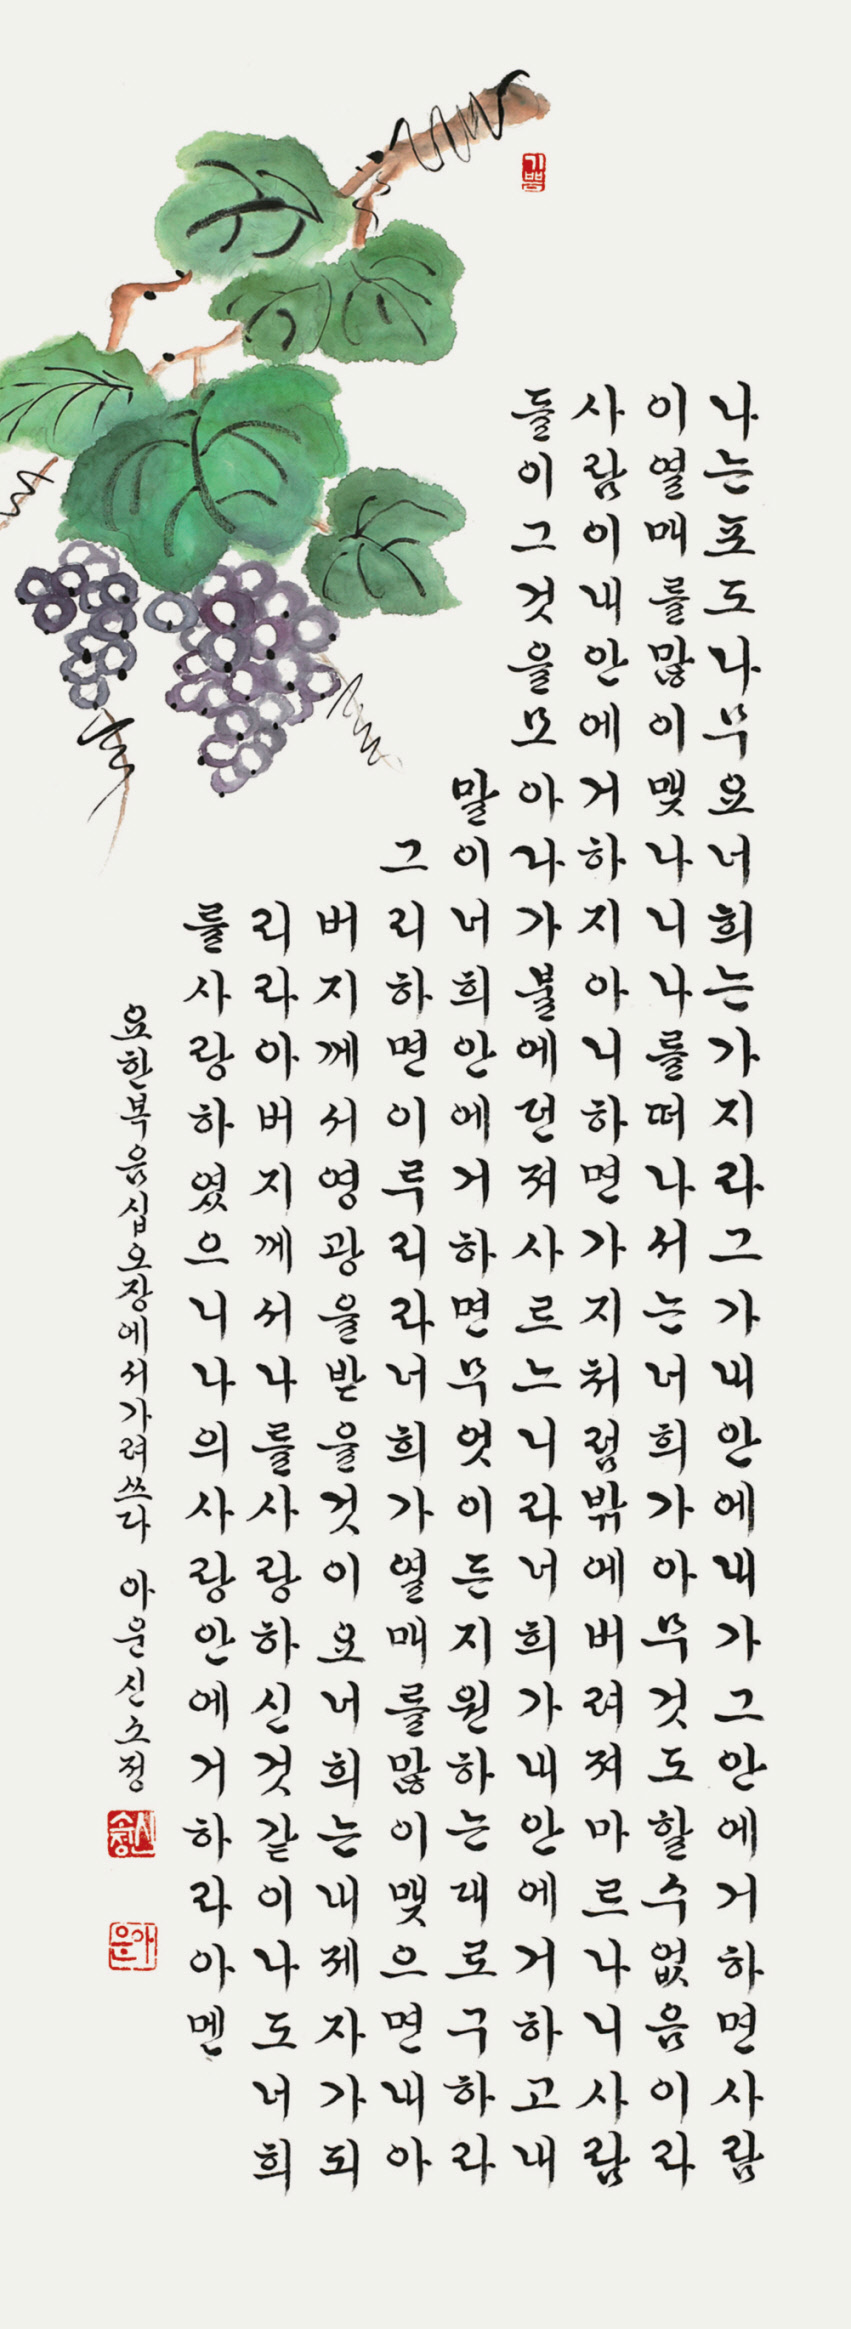 기쁨
나는포도나무요너희는가지라그가내안에내가그안에거하면사람
이열매를많이맺나니나를떠나서는너희가아무것도할수없음이라
사람이내안에거하지아니하면가지처럼밖에버려져마르나니사람
들이그것을모아다가불에던져사르느니라너희가내안에거하고내
말이너희안에거하면무엇이든지원하는대로구하라
그리하면이루리라너희가열매를많이맺으면내아
버지께서영광을받을것이요너희는내제자가되
리라아버지께서나를사랑하신것같이나도너희
를사랑하였으니나의사랑안에거하라아멘
요한복음십오장에서가려쓰다 아운신소정
신소정
아운